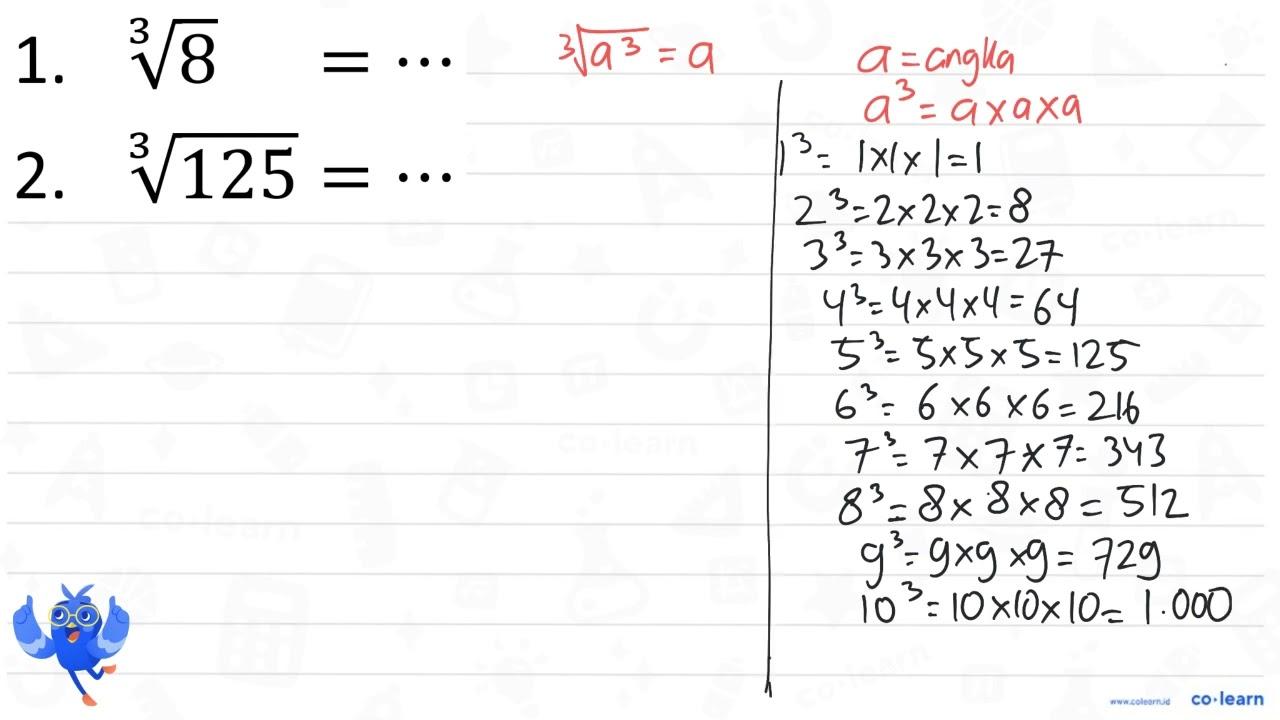 1. ∛8 = ...
2. ∛125 = ...
∛a³ = a
a = angka
a³ = a × a × a
1³ = 1 × 1 × 1 = 1
2³ = 2 × 2 × 2 = 8
3³ = 3 × 3 × 3 = 27
4³ = 4 × 4 × 4 = 64
5³ = 5 × 5 × 5 = 125
6³ = 6 × 6 × 6 = 216
7³ = 7 × 7 × 7 = 343
8³ = 8 × 8 × 8 = 512
9³ = 9 × 9 × 9 = 729
10³ = 10 × 10 × 10 = 1.000
www.colearn.id co·learn